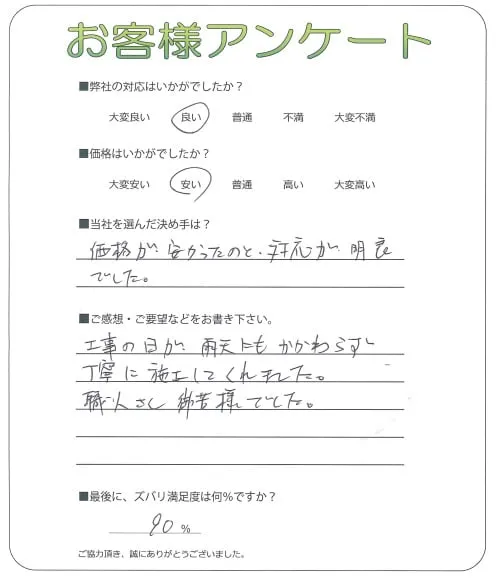 お客様アンケート
■弊社の対応はいかがでしたか？
大変良い 良い 普通 不満 大変不満
■価格はいかがでしたか？
大変安い 安い 普通 高い 大変高い
■当社を選んだ決め手は？
価格が、安かったのと、対応が、明良
でした。
■ご感想・ご要望などをお書き下さい。
工事の日が、雨天にもかかわらず
丁寧に施工してくれました。
職人さん 御苦様でした。
■最後に、ズバリ満足度は何%ですか？
90 %
ご協力頂き、誠にありがとうございました。